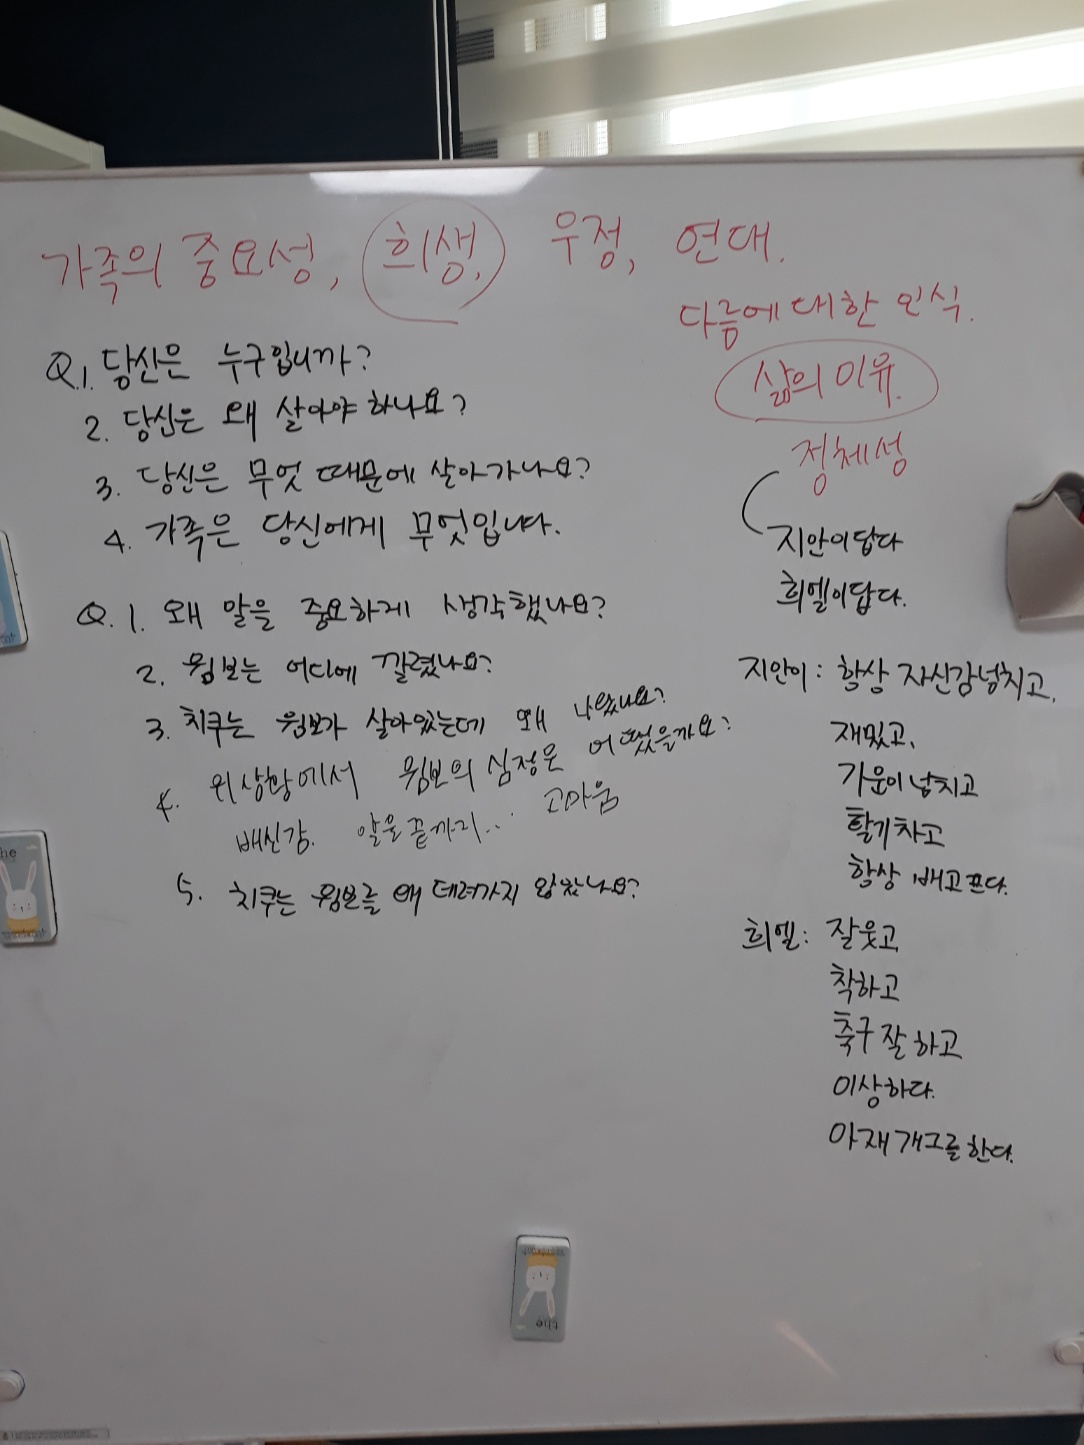 가족의 중요성, 희생, 우정, 연대.
다름에 대한 인식.
삶의 이유.
정체성
지안이답다
희엘이답다.
Q.1. 당신은 누구입니까?
2. 당신은 왜 살아야 하나요?
3. 당신은 무엇 때문에 살아가나요?
4. 가족은 당신에게 무엇입니다.
Q. 1. 왜 알을 중요하게 생각했나요?
2. 윔보는 어디에 깔렸나요?
3. 치쿠는 윔보가 살아있는데 왜 나왔나요?
4. 위 상황에서 윔보의 심정은 어땠을까요?
배신감. 알을 끝까지... 고마움
5. 치쿠는 윔보를 왜 데려가지 않았나요?
지안이: 항상 자신감넘치고,
재밌고,
기운이 넘치고
활기차고
항상 배고프다.
희엘: 잘웃고
착하고
축구 잘하고
이상하다.
아재개그를 한다.
the